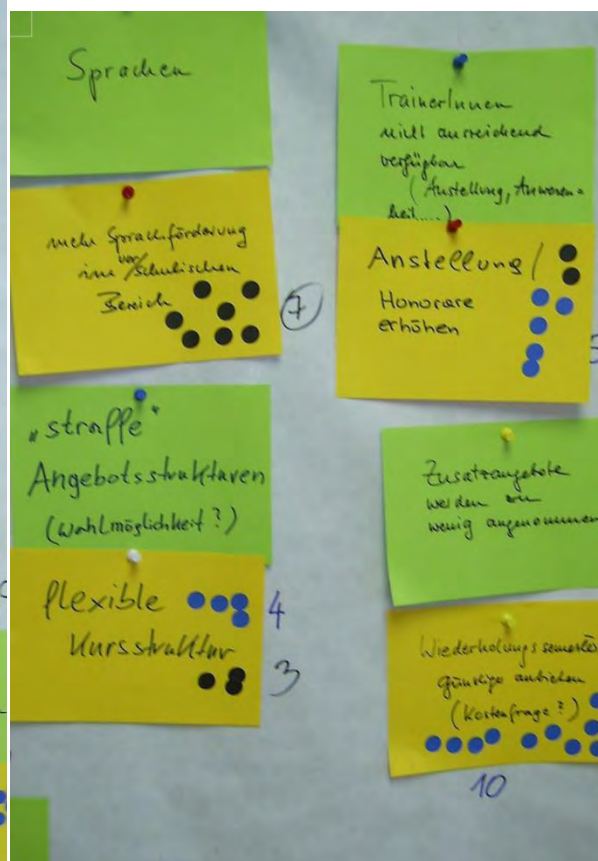 Sprachen
mehr Sprachförderung
im vor/schulischen
Bereich
7
„straffe"
Angebotsstrukturen
(Wahlmöglichkeit?)
flexible
4
Kursstruktur
3
TrainerInnen
nicht ausreichend
verfügbar
(Anstellung, Anwesen=
heit....)
Anstellung/
Honorare
erhöhen
5
Zusatzangebote
werden zu
wenig angenommen
Wiederholungssemester
günstige anbieten
(Kostenfrage?)
10